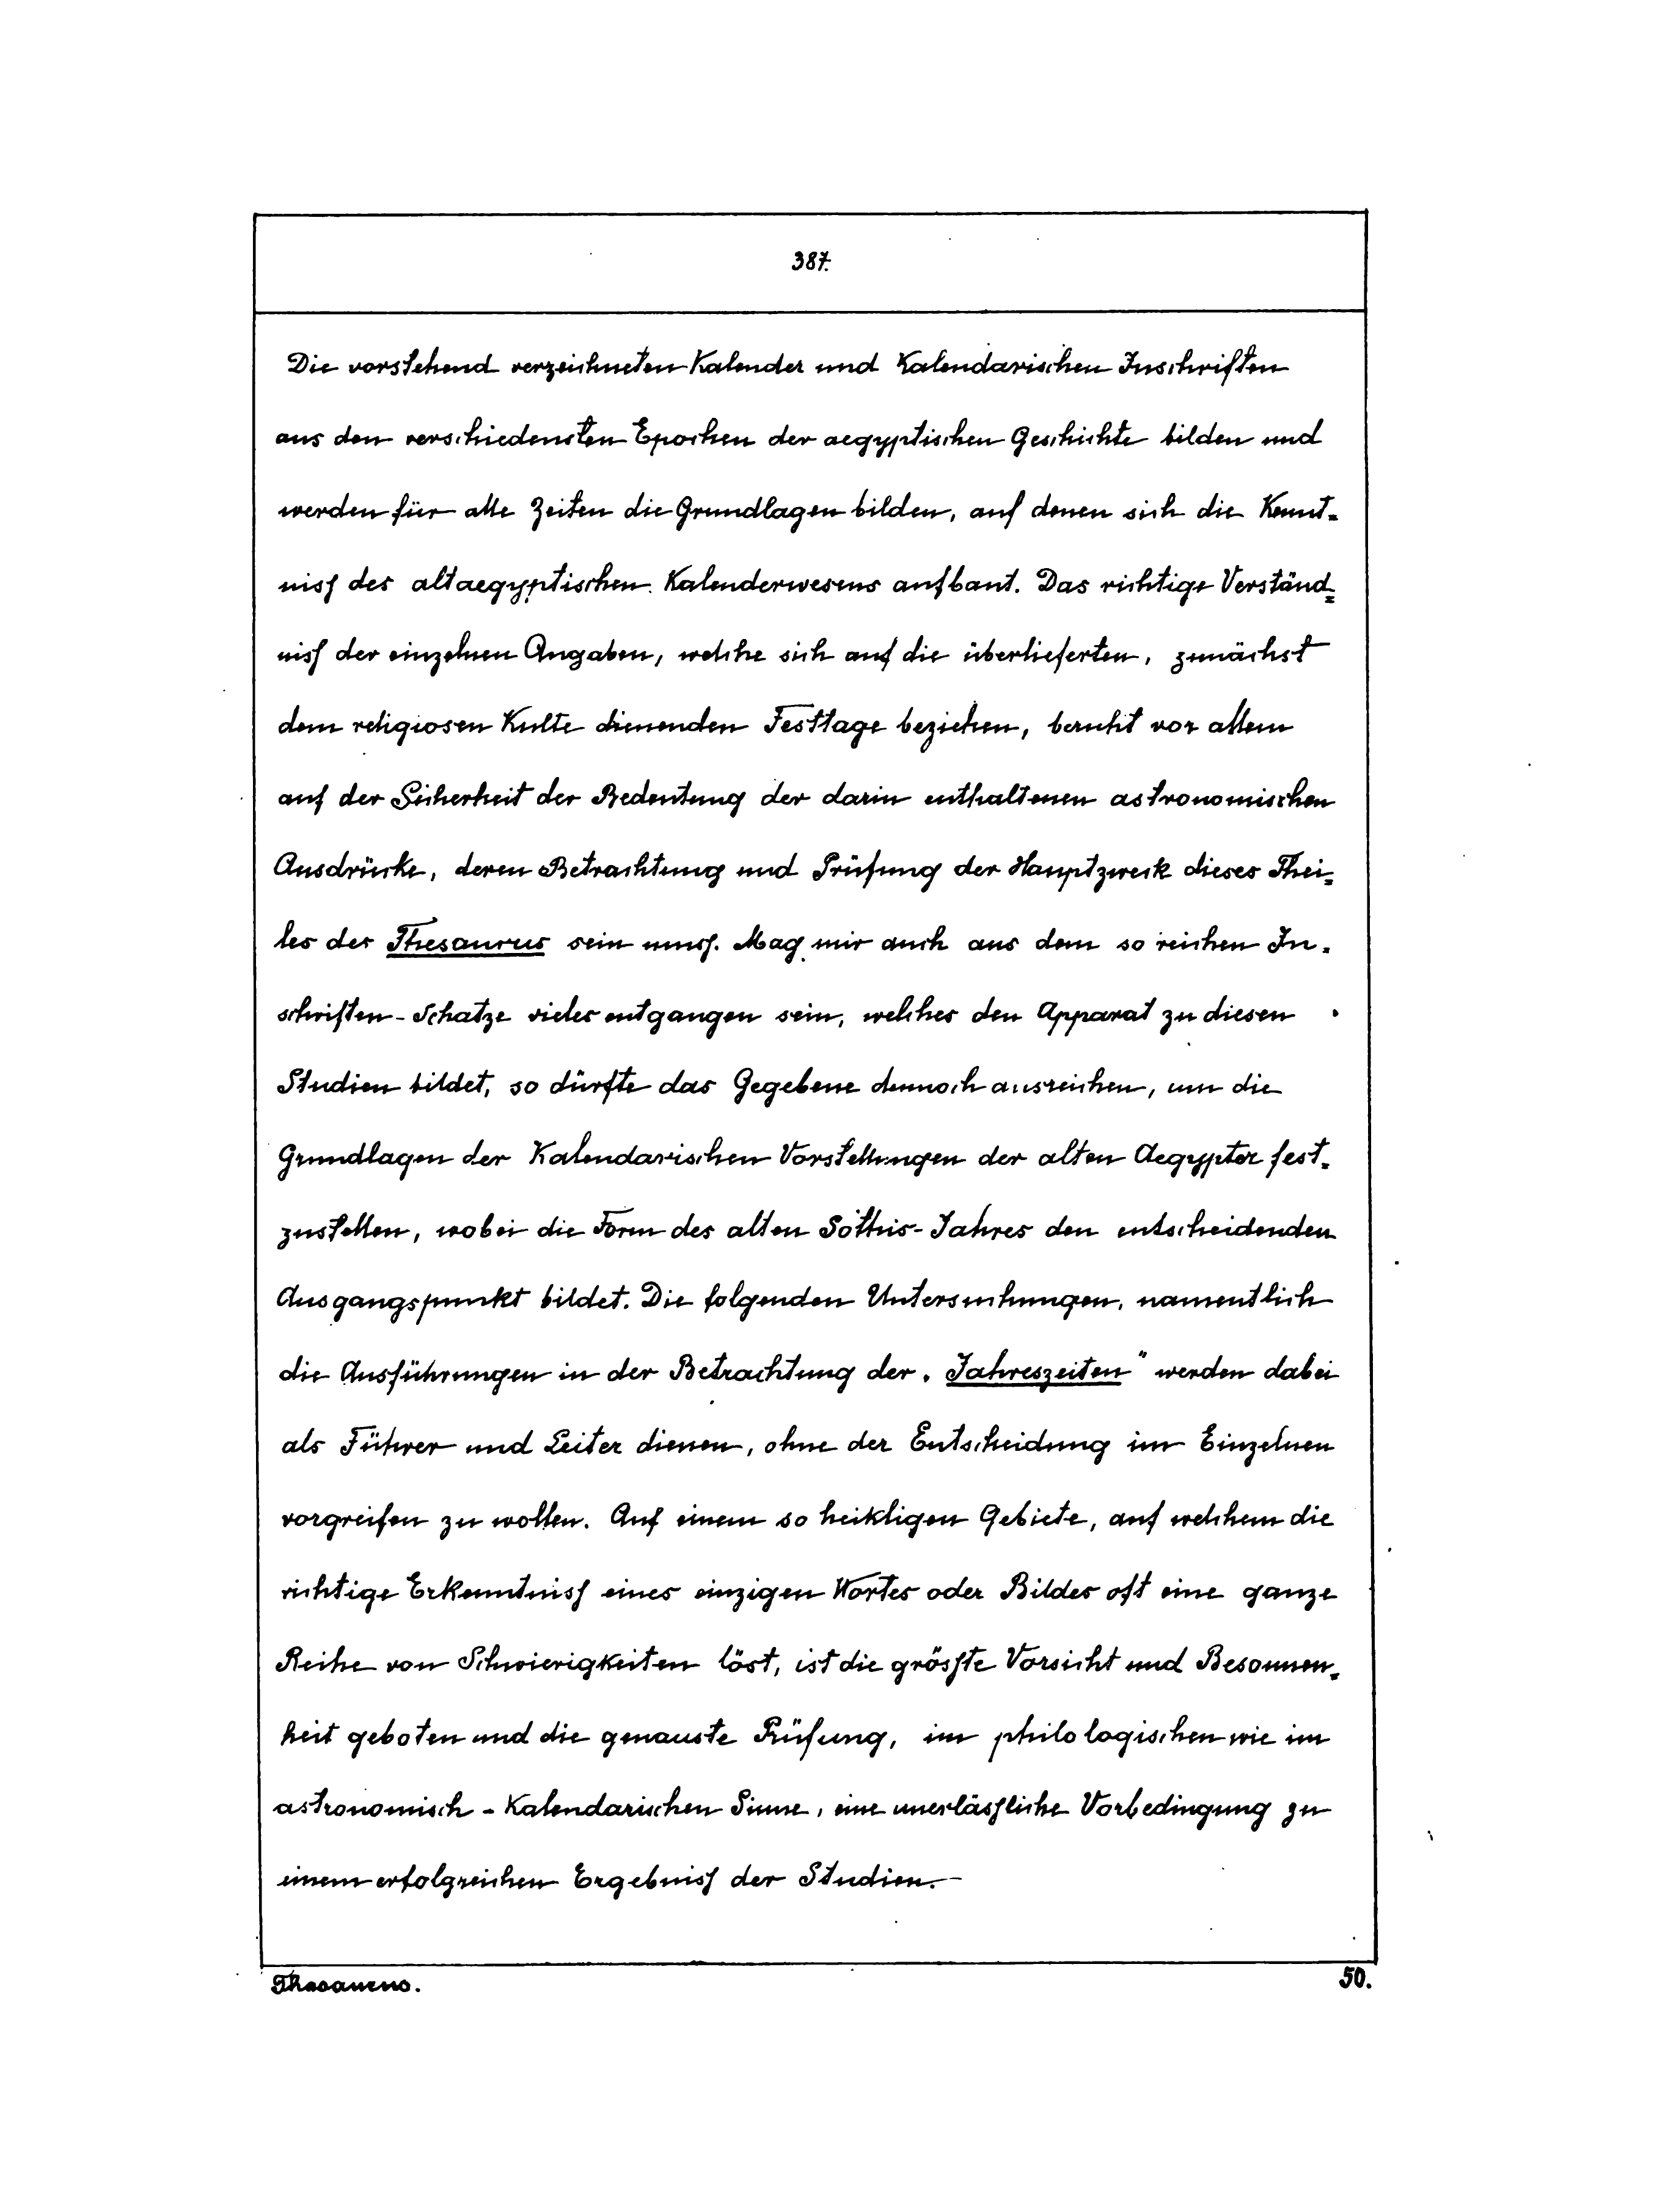 387.
Die vorstehend verzeichneten Kalender und Kalendarischen Inschriften
aus den verschiedensten Epochen der aegyptischen Geschichte bilden und
werden für alle Zeiten die Grundlagen bilden, auf denen sich die Kennt=
niss des altaegyptischen Kalenderwesens aufbaut. Das richtige Verständ=
niss der einzelnen Angaben, welche sich auf die überlieferten, zunächst
dem religiosen Kulte dienenden Festtage beziehen, beruht vor allem
auf der Sicherheit der Bedeutung der darin enthaltenen astronomischen
Ausdrücke, deren Betrachtung und Prüfung der Hauptzweck dieses Thei=
les des Thesaurus sein muss. Mag mir auch aus dem so reichen In=
schriften-Schatze vieles entgangen sein, welches den Apparat zu diesen
Studien bildet, so dürfte das Gegebene dennoch ausreichen, um die
Grundlagen der Kalendarischen Vorstellungen der alten Aegypter fest=
zustellen, wobei die Form des alten Sothis-Jahres den entscheidenden
Ausgangspunkt bildet. Die folgenden Untersuchungen, namentlich
die Ausführungen in der Betrachtung der „Jahreszeiten" werden dabei
als Führer und Leiter dienen, ohne der Entscheidung im Einzelnen
vorgreifen zu wollen. Auf einem so heikligen Gebiete, auf welchem die
richtige Erkenntniss eines einzigen Wortes oder Bildes oft eine ganze
Reihe von Schwierigkeiten löst, ist die grösste Vorsicht und Besonnen=
heit geboten und die genauste Prüfung, im philologischen wie im
astronomisch-Kalendarischen Sinne, eine unerlässliche Vorbedingung zu
einem erfolgreichen Ergebniss der Studien.—
Thesaurus.
50.